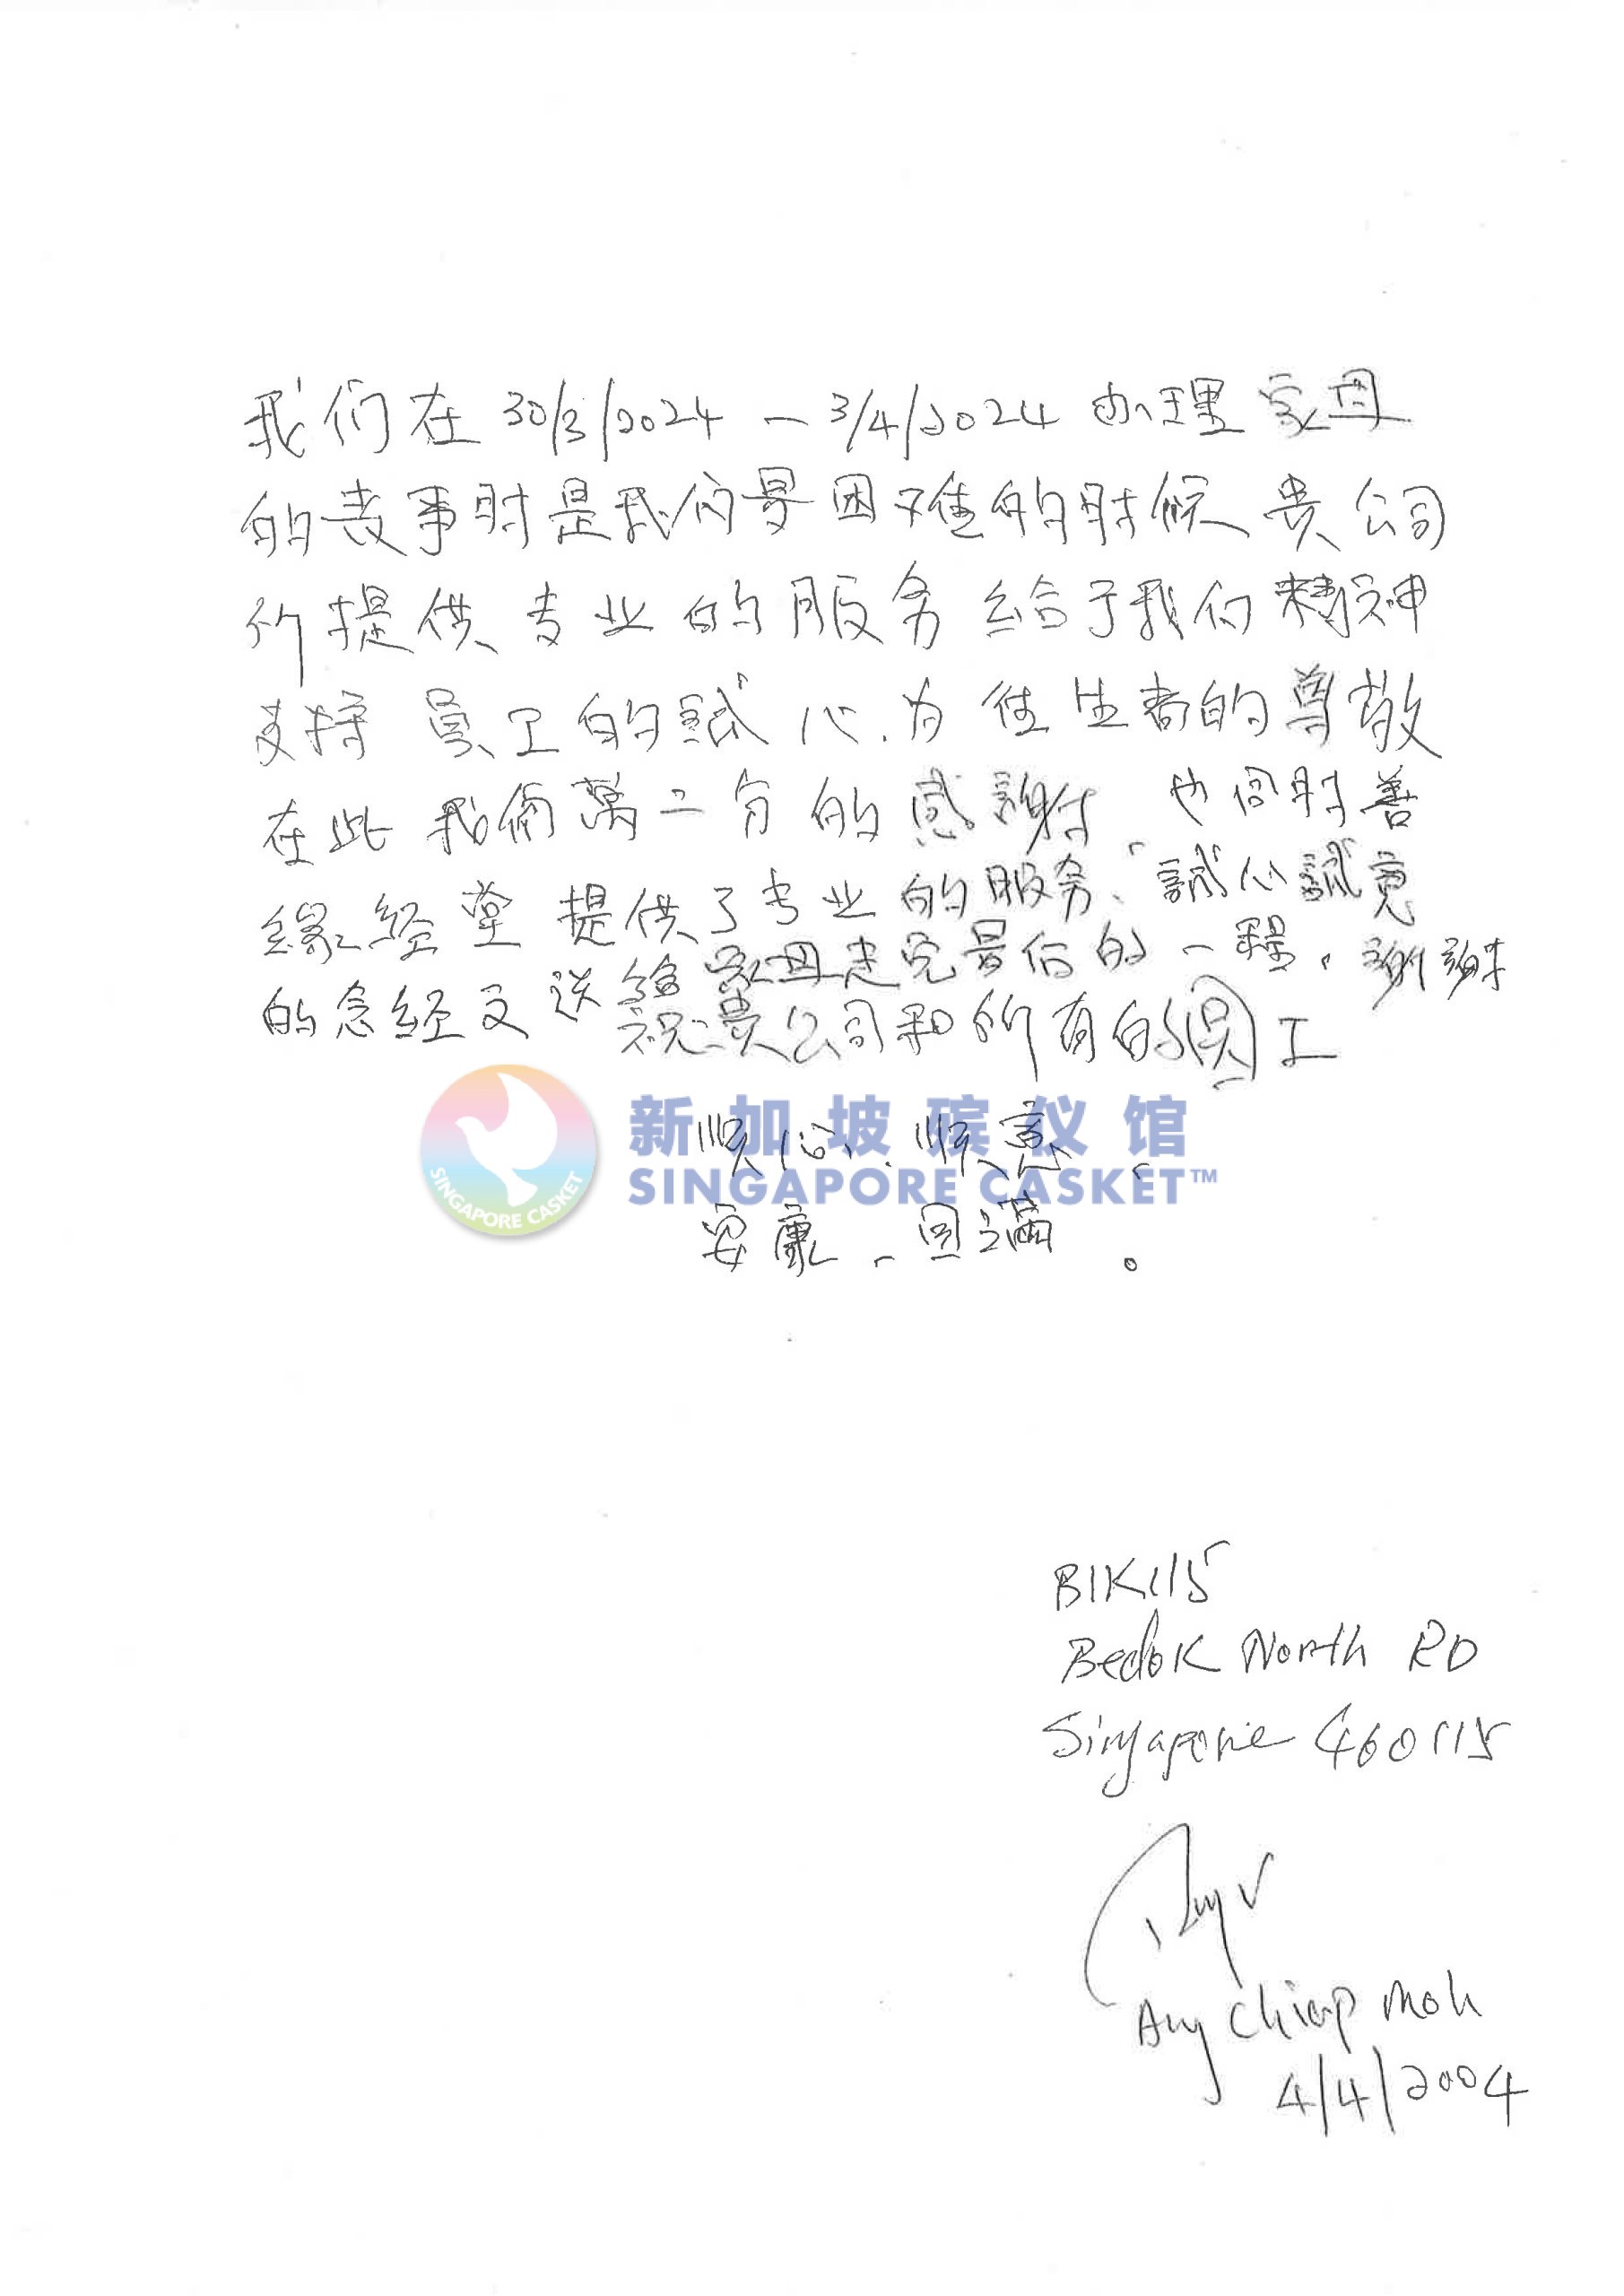 我们在 30/3/2024 — 3/4/2024 办理家母
的丧事时是我们最困难的时候贵公司
所提供专业的服务给于我们精神
支持员工的誠心.为往生者的尊敬
在此我俩萬二分的感謝、也同时善
緣经堂提供了专业的服务、誠心誠意
的念经文送给家母走完最后的一程, 謝謝
祝贵公司和所有的员工
新加坡殡仪馆
SINGAPORE CASKET™
SINGAPORE CASKET
顺心、顺意、
安康、圆满。
Blk115
Bedok North RD
Singapore 460115
Ang Chiap Moh
4/4/2004